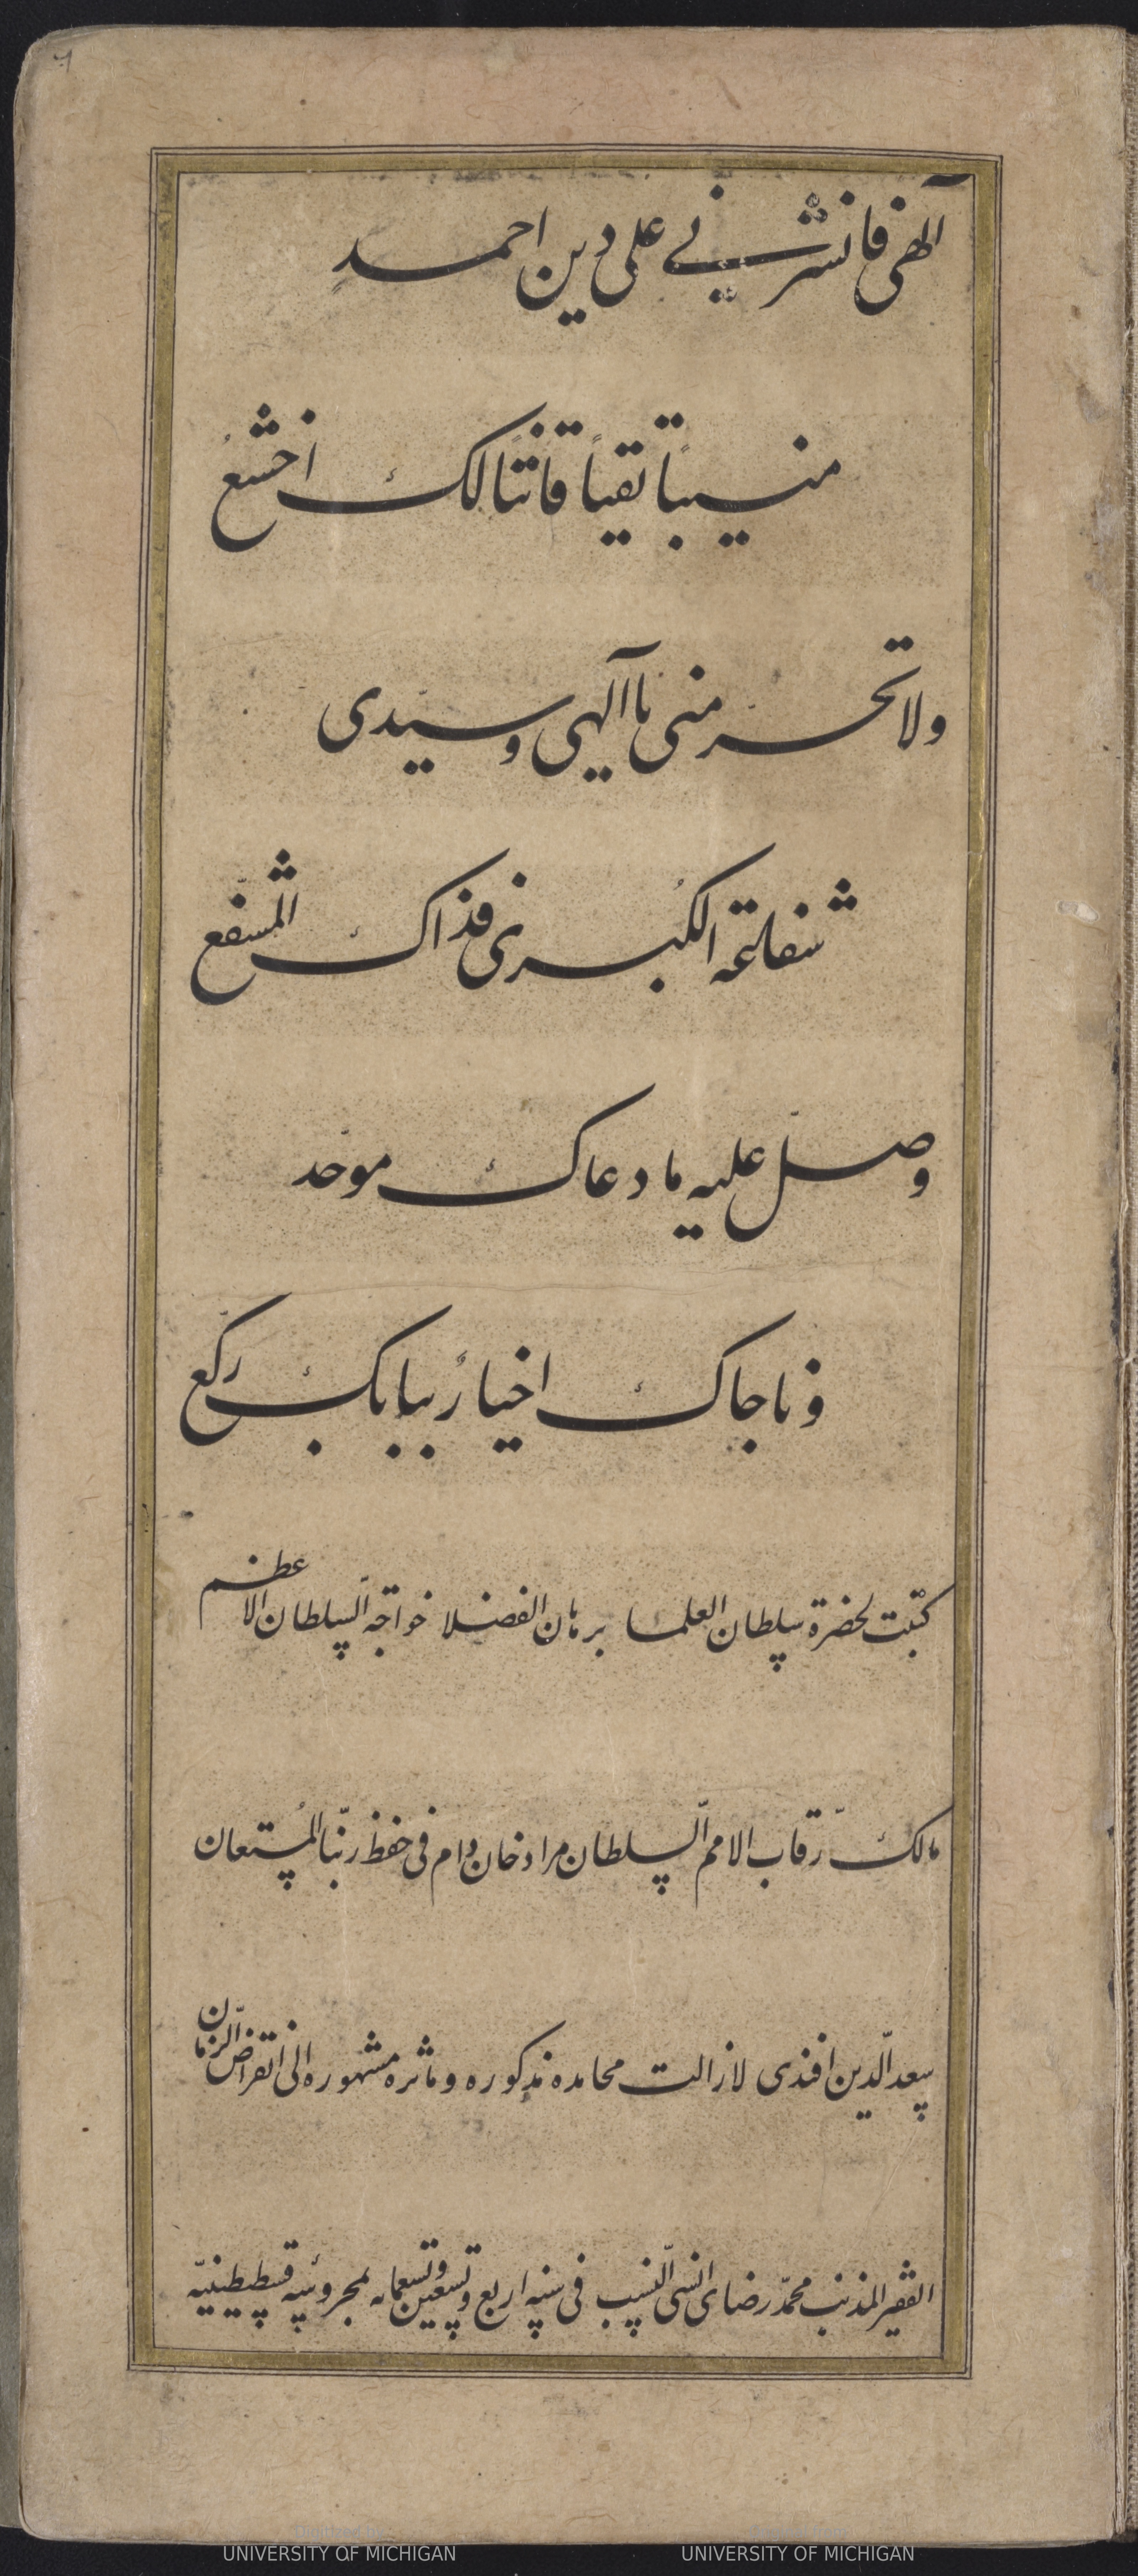 آلهی فانشرنی علی دین احمد
منیباً تقیاً قانتاً لک اخشعُ
ولا تحرمنی یا آلهی وسیّدی
شفاعته الکُبری فذاک المشفّع
وصلّ علیه ما دعاک موحّد
و ناجاک اخیارُ ببابک رکّع
کتبت لحضرة سلطان العلما برهان الفضلا خواجه السّلطان الاعظم
مالک رّقاب الامم السّلطان مراد خان دام فی حفظ ربّنا المُستعان
سعد الّدین افندی لازالت محامده مذکوره و ماثره مشهوره الی انقراض الزّمان
الفقیر المذنب محمّد رضای النّسب فی سنه اربع وتسعین وتسعمائه بمحروسه قسطنطینیّه
UNIVERSITY OF MICHIGAN
UNIVERSITY OF MICHIGAN